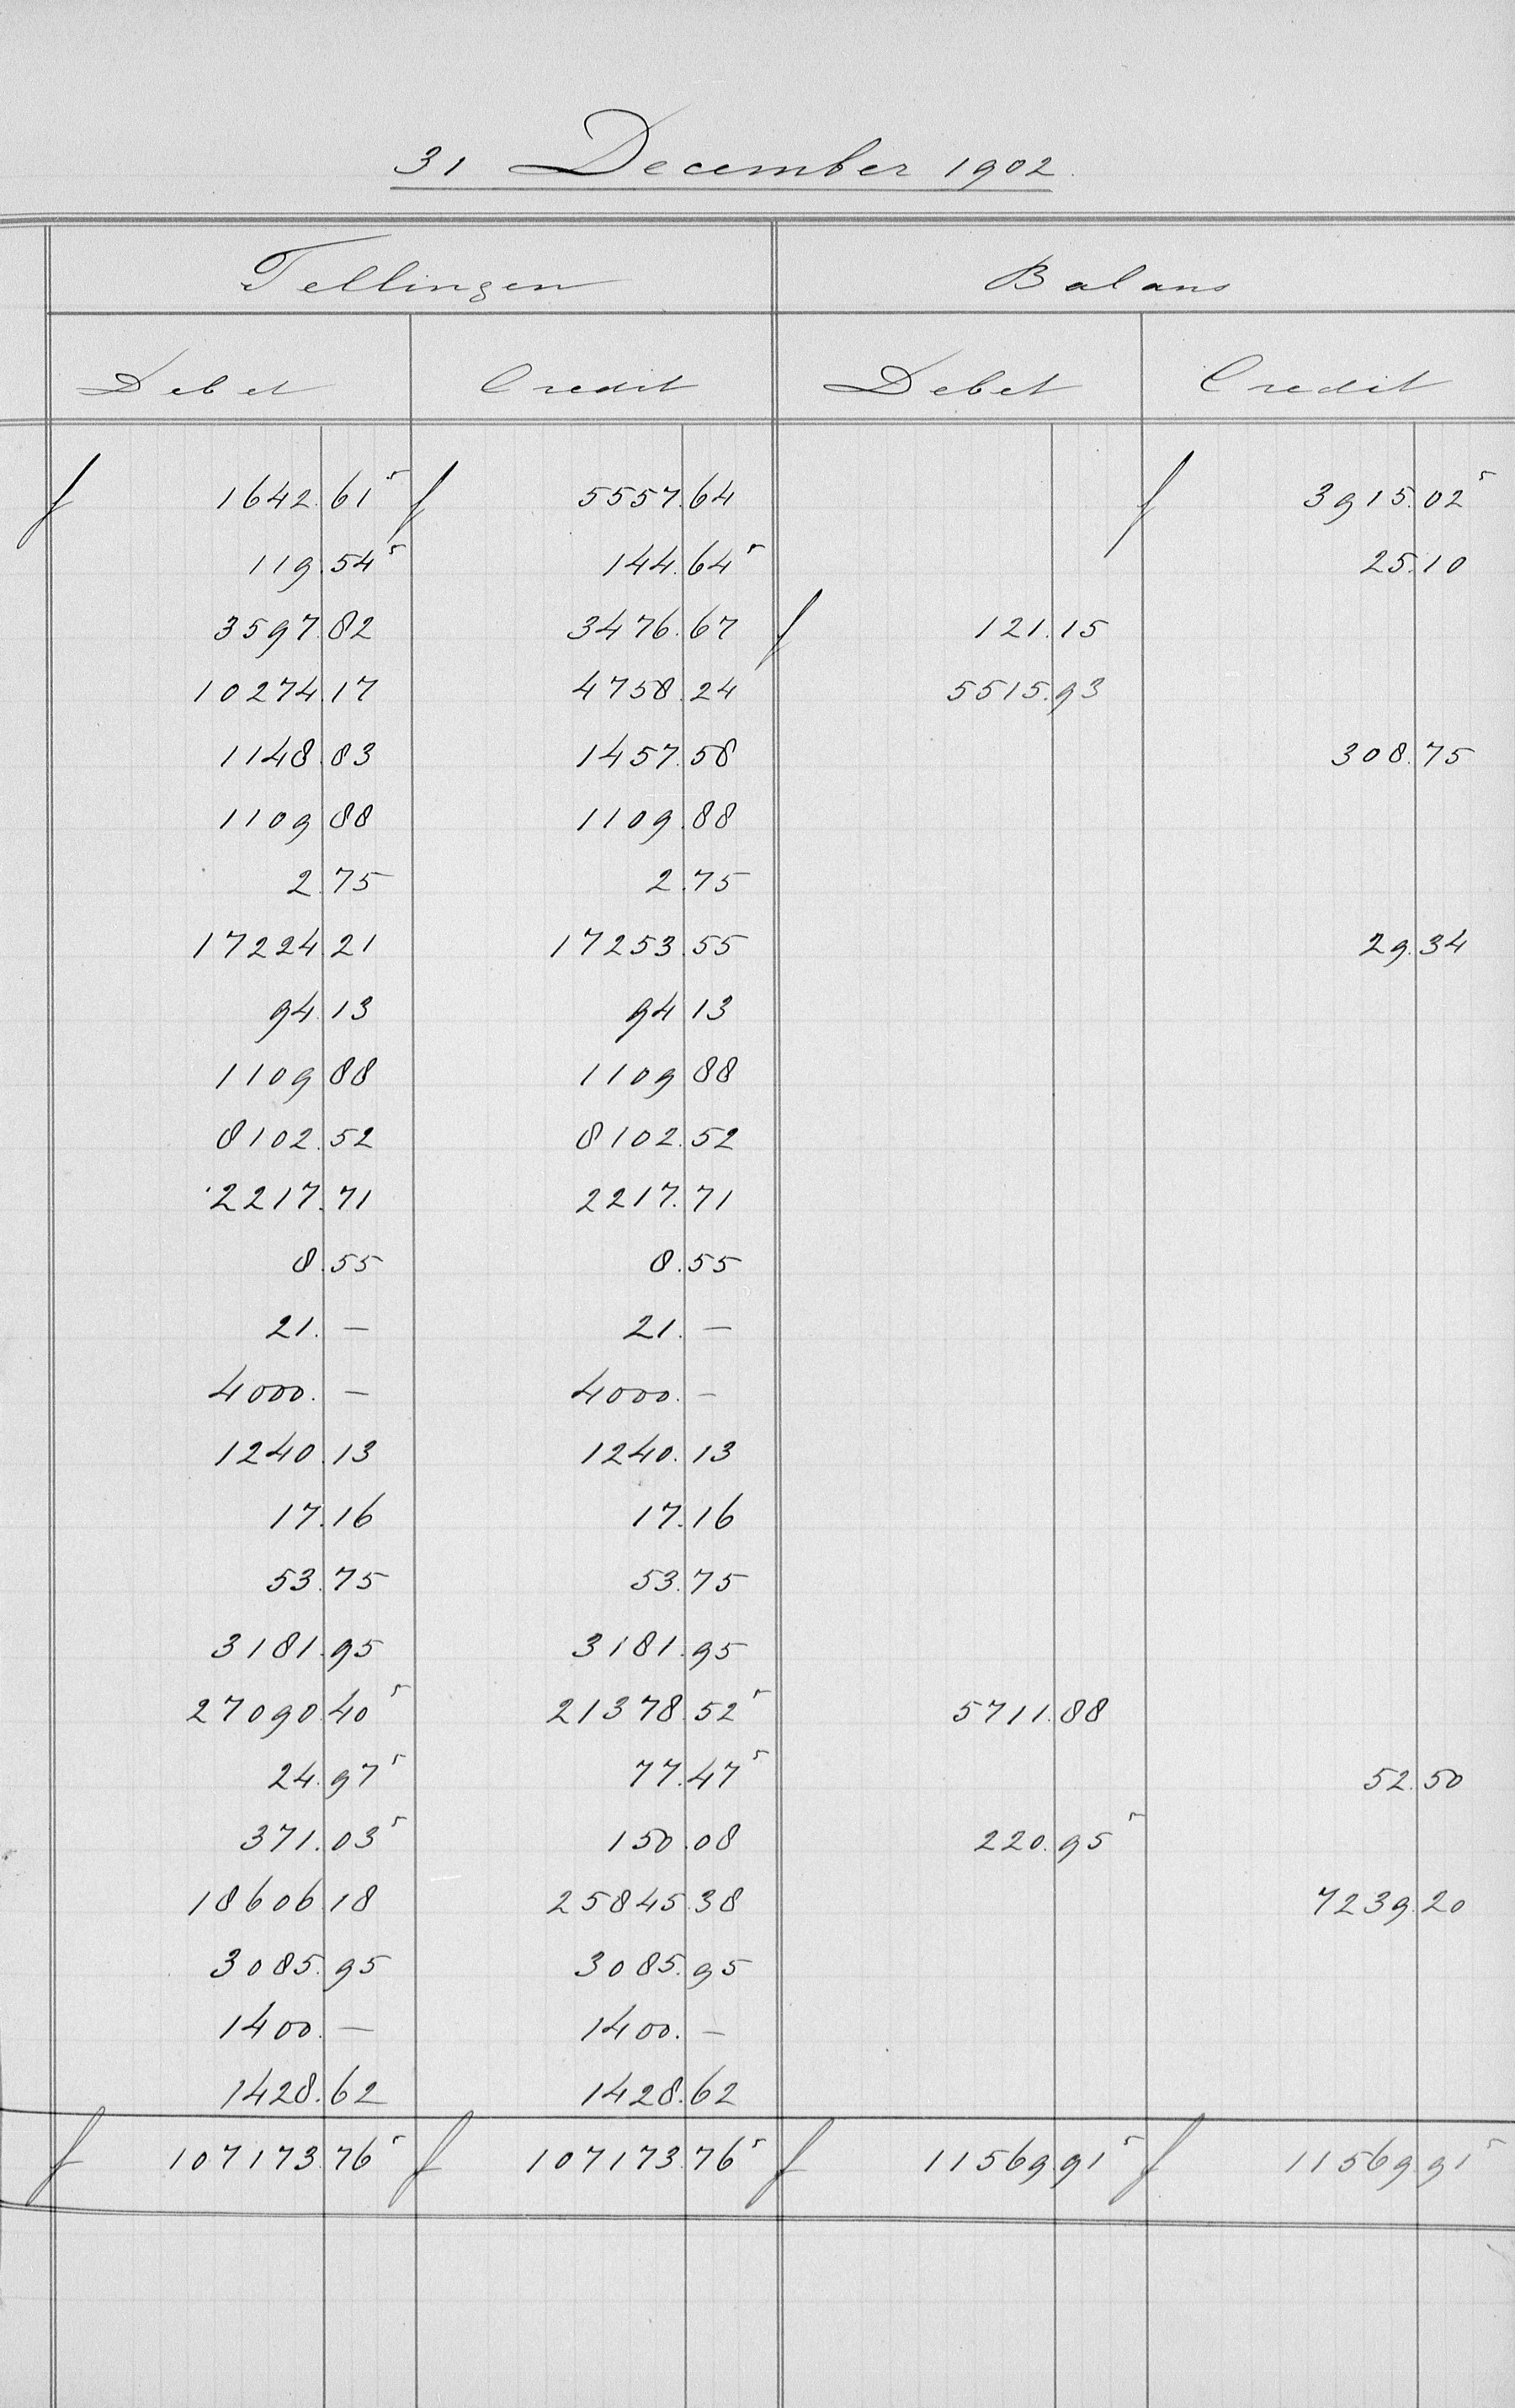 31 December 1902.
Tellingen Balans
Debet Credit Debet Credit
f 1642.61⁵ f 5557.64 f 3915.02⁵
119.54⁵ 144.64⁵ 25.10
3597.82 3476.67 f 121.15
10274.17 4758.24 5515.93
1148.83 1457.58 308.75
1109 88 1109.88
2.75 2.75
17224.21 17253.55 29.34
94.13 94 13
1109 88 1109 88
8102.52 8102.52
2217.71 2217.71
8.55 8.55
21. — 21. —
4000. — 4000. —
1240.13 1240.13
17.16 17.16
53.75 53.75
3181.95 3181.95
27090.40⁵ 21378.52⁵ 5711.88
24.97⁵ 77.47⁵ 52.50
371.03⁵ 150.08 220.95⁵
18606 18 25845.38 7239.20
3085.95 3085.95
1400. — 1400. —
1428.62 1428.62
f 107173.76⁵ f 107173.76⁵ f 11569.91⁵ f 11569.91⁵